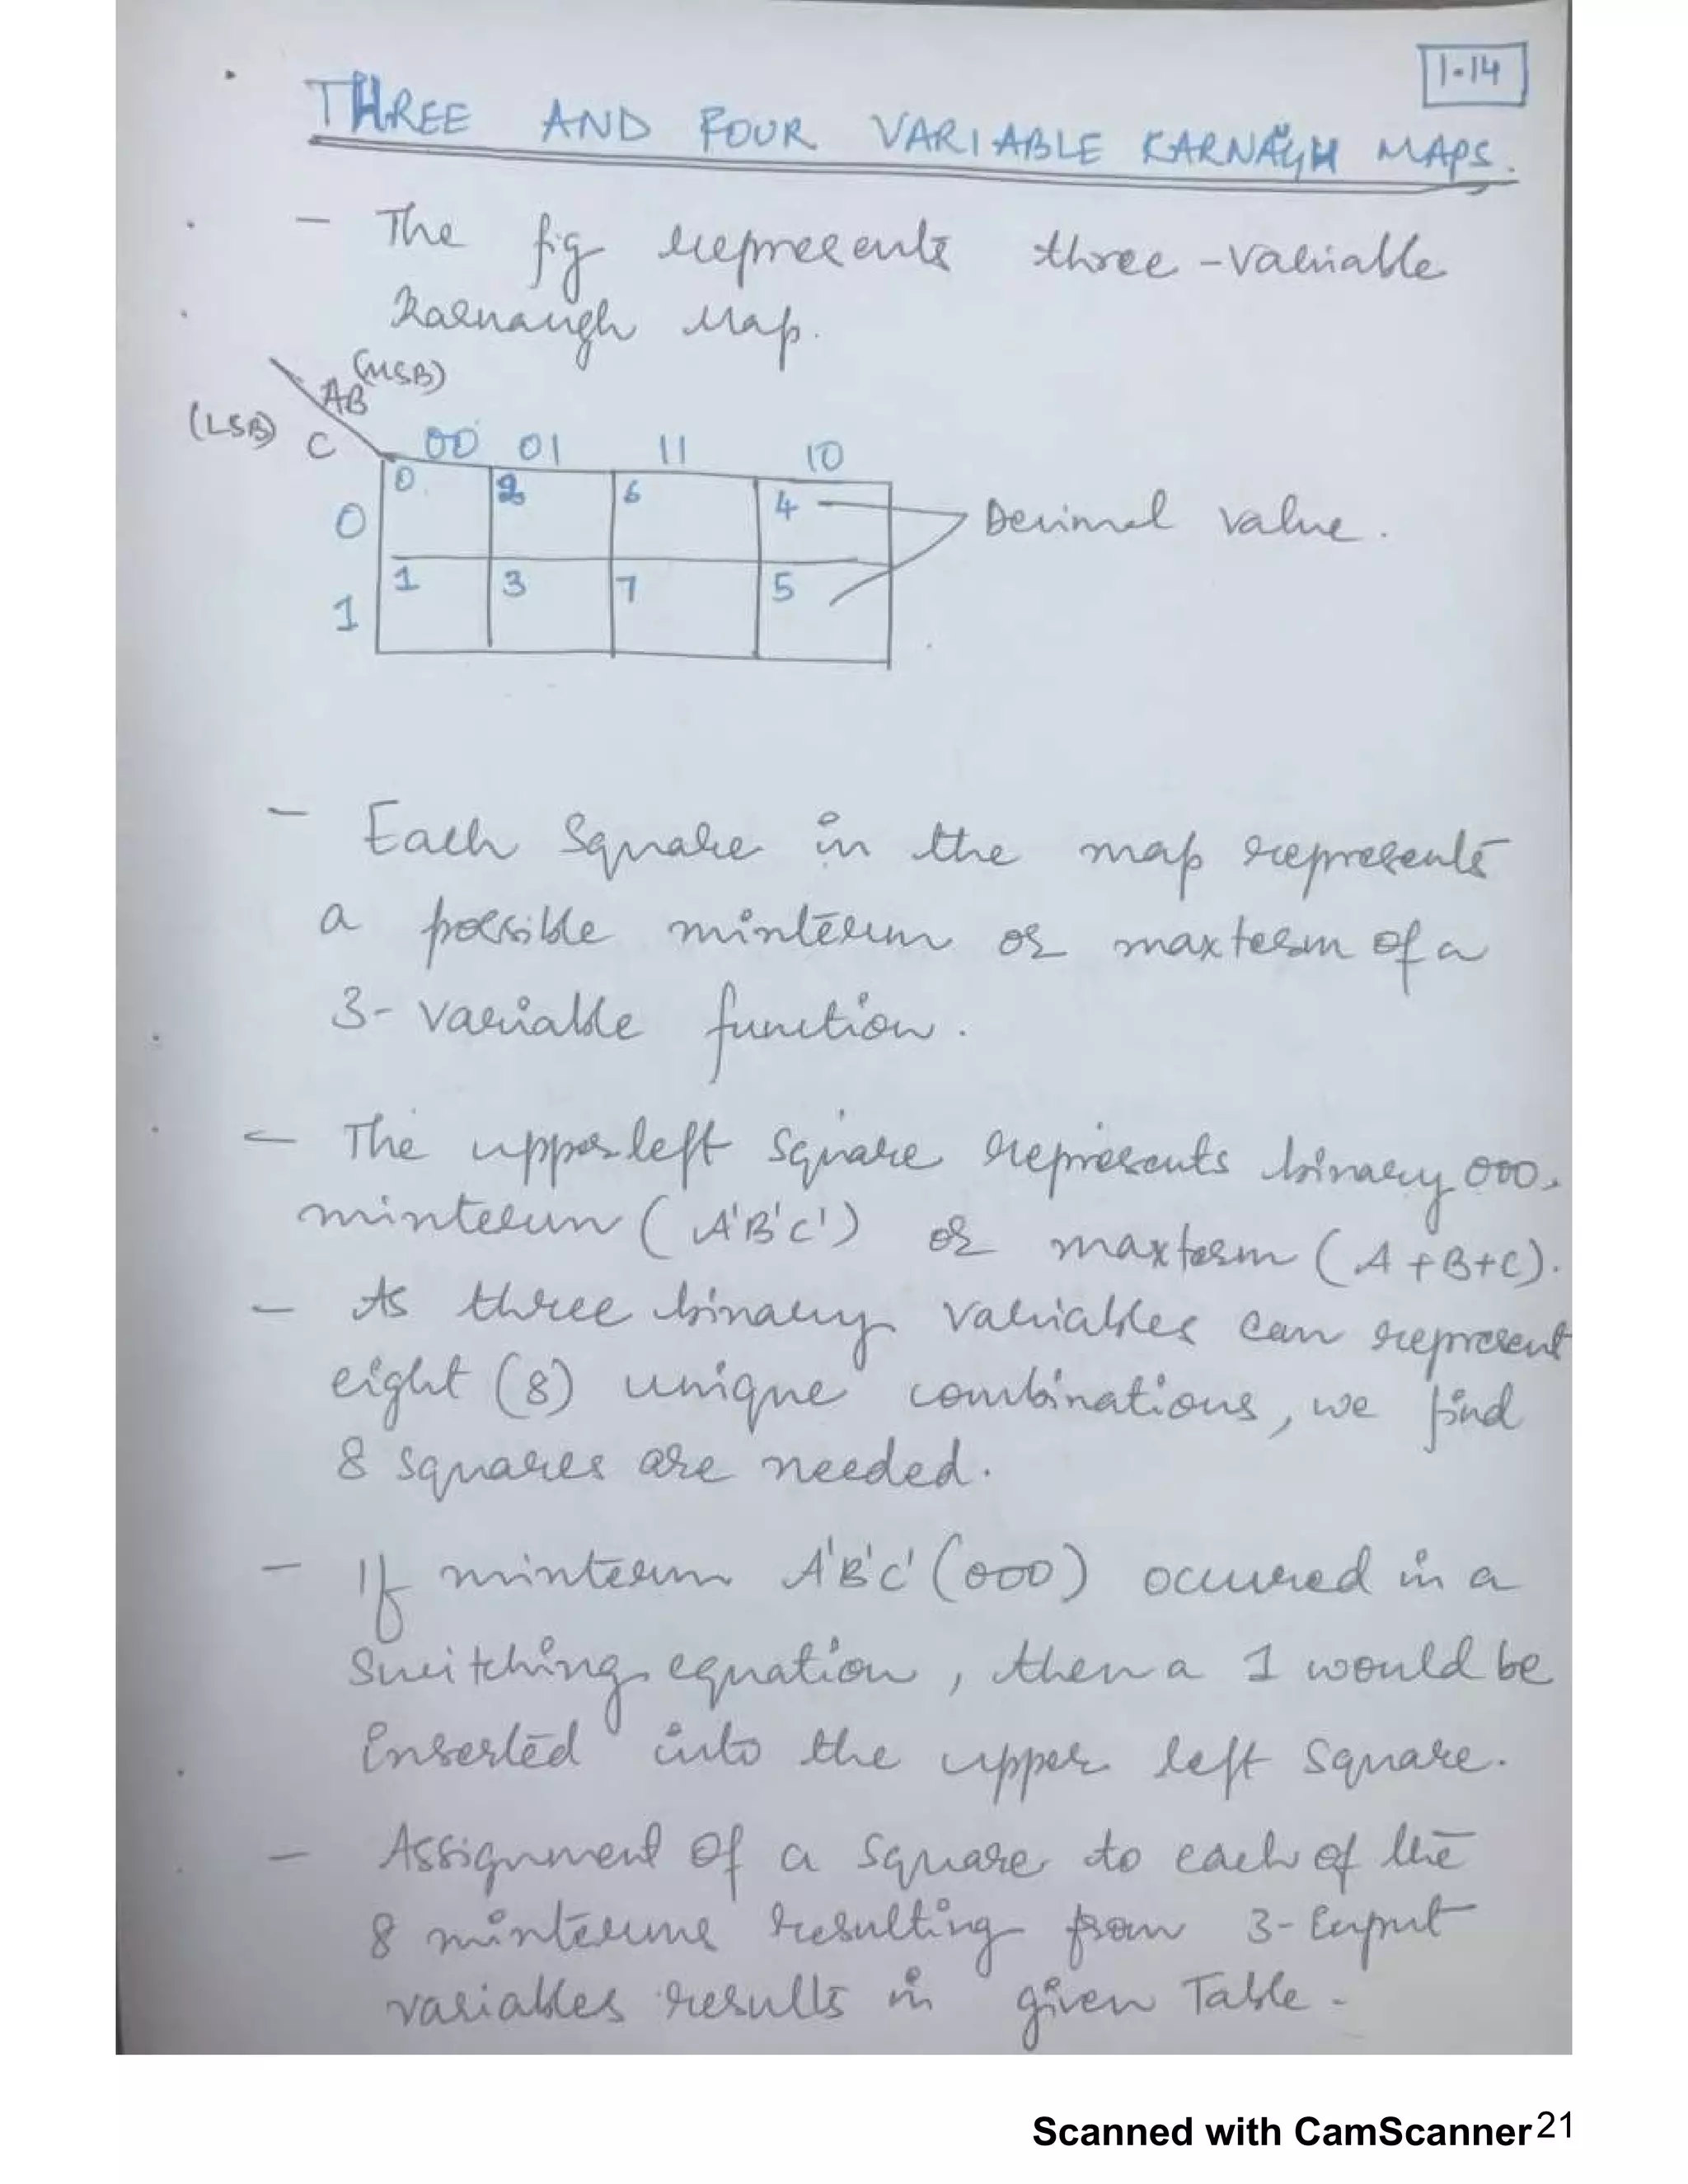 1.14
THREE AND FOUR VARIABLE KARNAUGH MAPS.
- The fig represents three-variable
Karnaugh Map.
(MSB)
AB
(LSB) C 00 01 11 10
0 0 2 6 4 Decimal value.
1 1 3 7 5
- Each square in the map represents
a possible minterm or maxterm of a
3-variable function.
- The upper left square represents binary 000,
minterm (A'B'C') or maxterm (A+B+C).
- As three binary variables can represent
eight (8) unique combinations, we find
8 squares are needed.
- If minterm A'B'C' (000) occured in a
switching equation, then a 1 would be
inserted into the upper left square.
- Assignment of a square to each of the
8 minterms resulting from 3-input
variables results in given Table.
Scanned with CamScanner 21